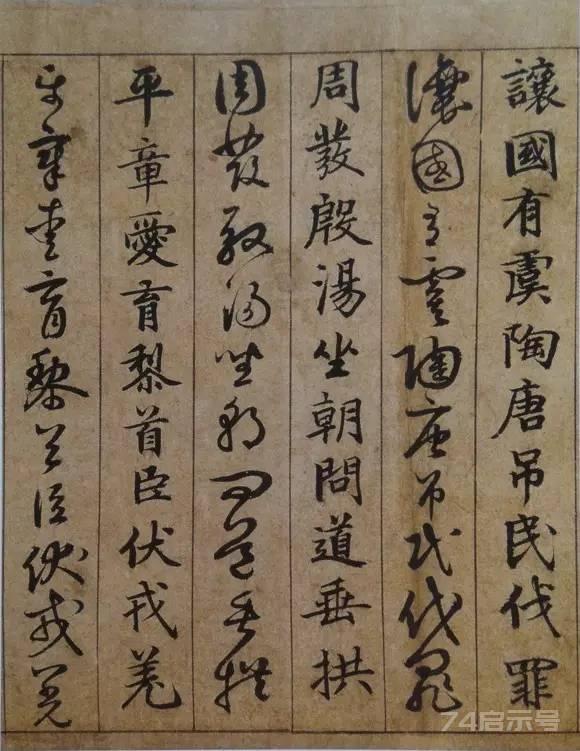 讓國有虞陶唐吊民伐罪
讓國有虞陶唐吊民伐罪
周發殷湯坐朝問道垂拱
周發殷湯坐朝問道垂拱
平章愛育黎首臣伏戎羌
平章愛育黎首臣伏戎羌
74启示号